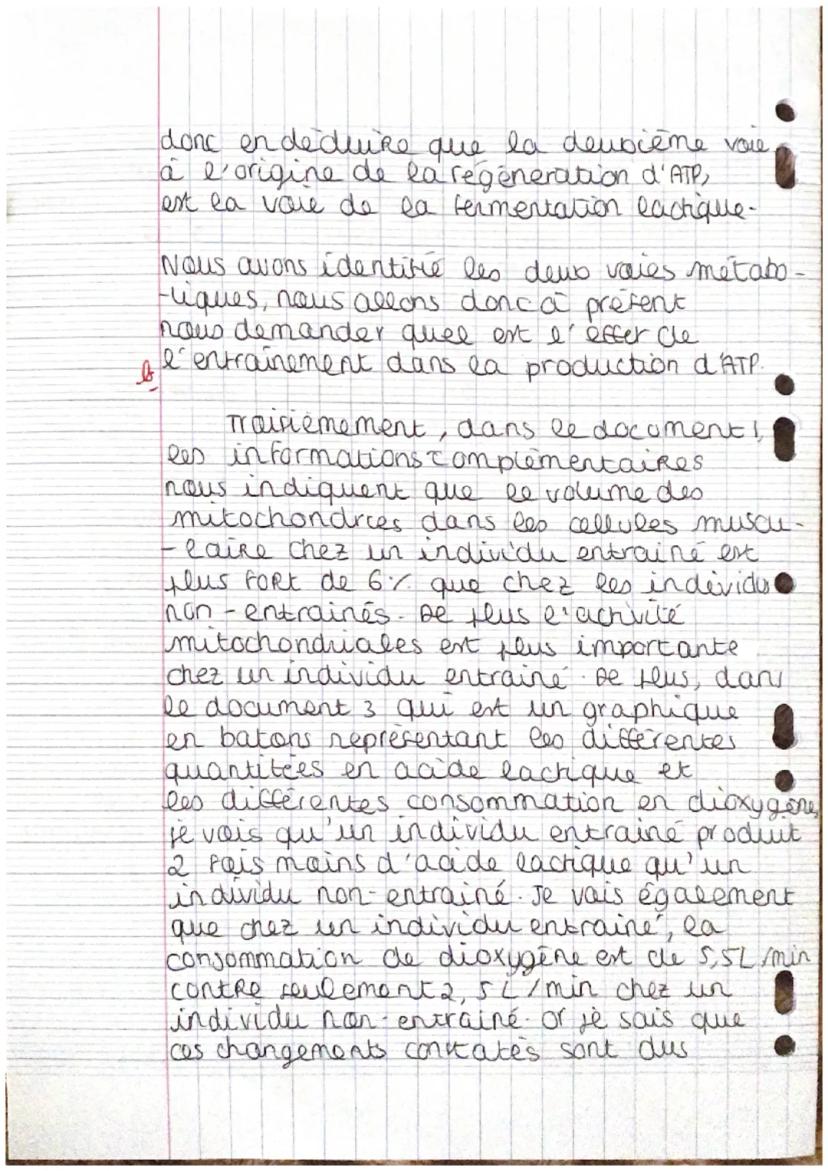 donc en déduire que la deuxième voie
à l'origine de la régénération d'ATP,
est la voie de la fermentation lactique.
Nous avons identifié les deux voies métabo-
-liques, nous allons donc à présent
nous demander quel est l'effet de
l'entraînement dans la production d'ATP.
Troisièmement, dans le document 1,
les informations complémentaires
nous indiquent que le volume des
mitochondries dans les cellules muscu-
-laire chez un individu entrainé est
plus fort de 6% que chez les individu
non-entrainés. De plus l'activité
mitochondriales est plus importante
chez un individu entrainé. De plus, dans
le document 3 qui est un graphique
en batons représentant les différentes
quantitées en acide lactique et
les différentes consommation en dioxygène,
je vois qu'un individu entrainé produit
2 fois moins d'acide lactique qu'un
individu non-entrainé. Je vois également
que chez un individu entrainé, la
consommation de dioxygène est de 5,5L/min
contre seulement 2,5L/min chez un
individu non-entrainé. Or je sais que
ces changements constatés sont dus